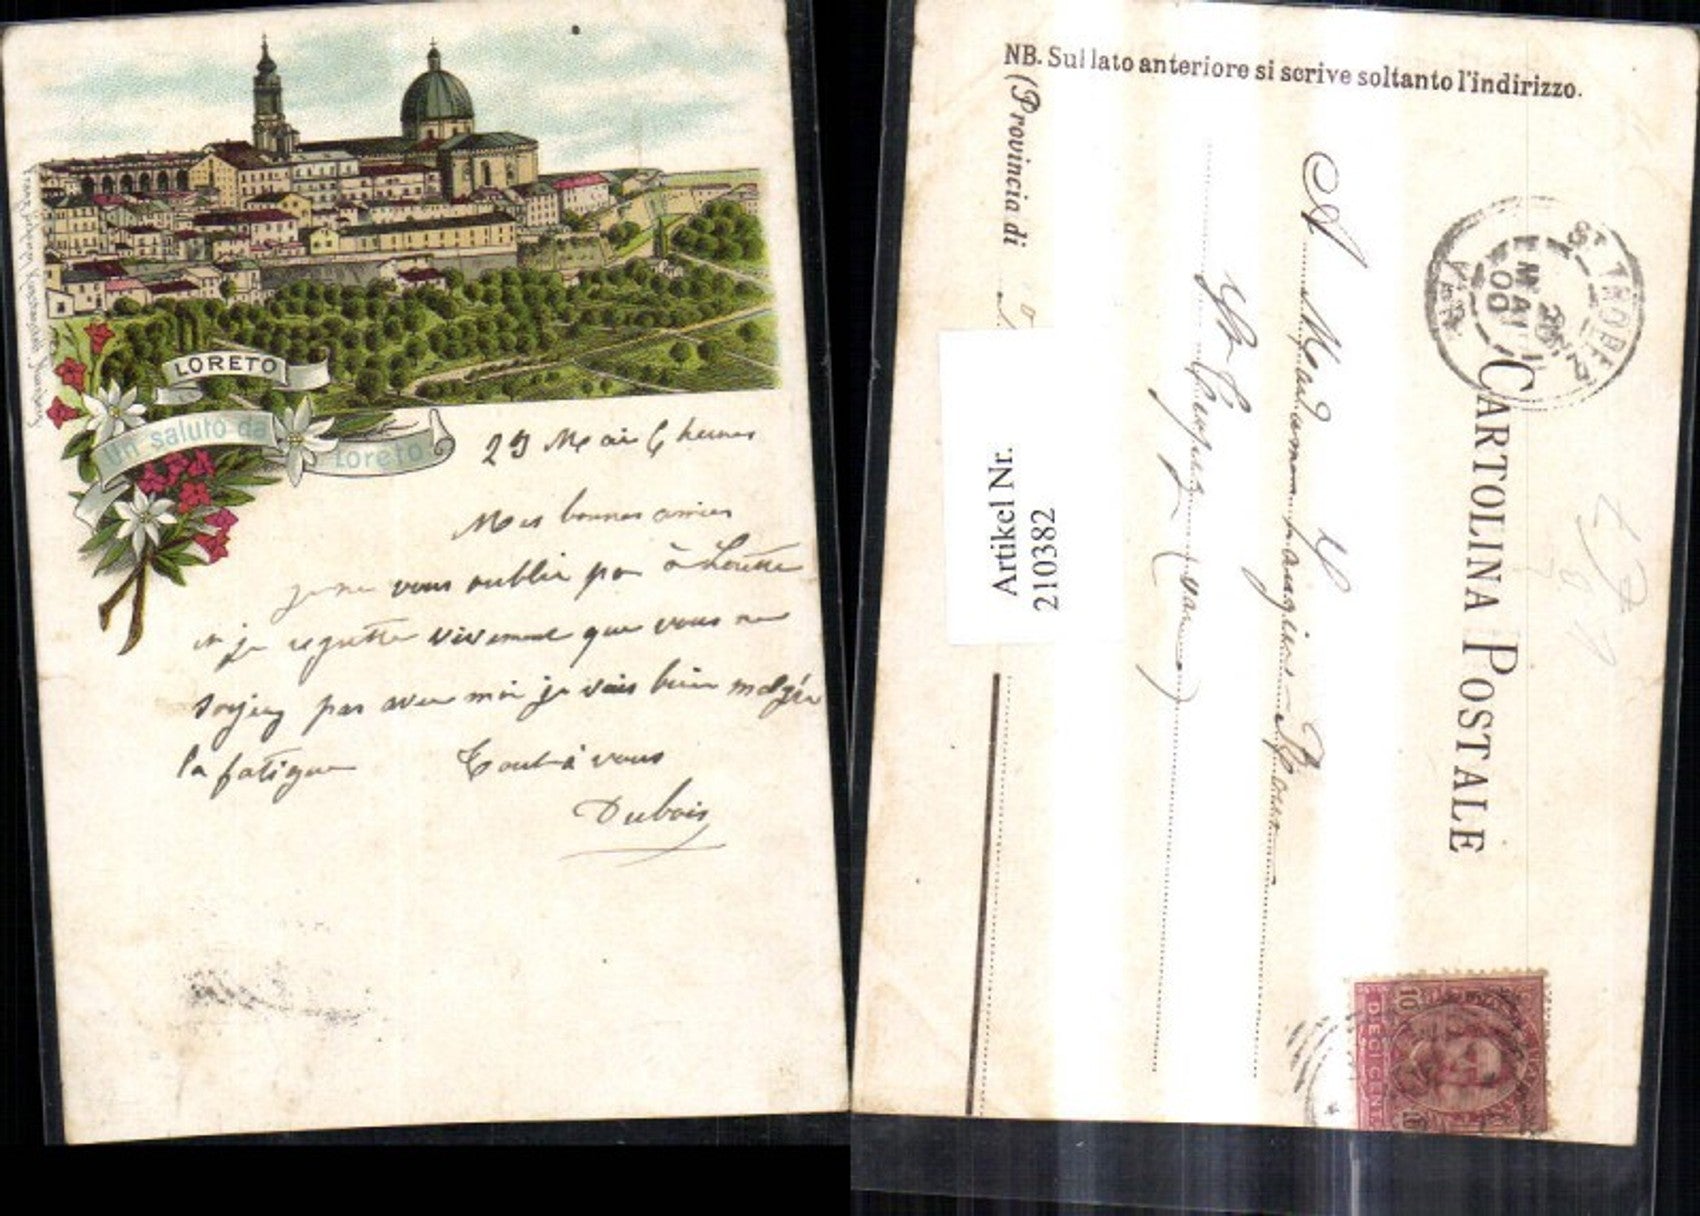 LORETO
un saluto da
Loreto
29 Mai 6 heures
Mes bonnes amies
je ne vous oublie pas à Lorette
et je regrette vivement que vous ne
soyiez pas avec moi je vais bien malgré
la fatigue Tout à vous
Dubois
NB. Sul lato anteriore si scrive soltanto l'indirizzo.
(Provincia di
CARTOLINA POSTALE
A Madame
St Tropez (Var)
ST TROPEZ
MAI
00
VAR
Artikel Nr.
210382
10
DIECI CENT